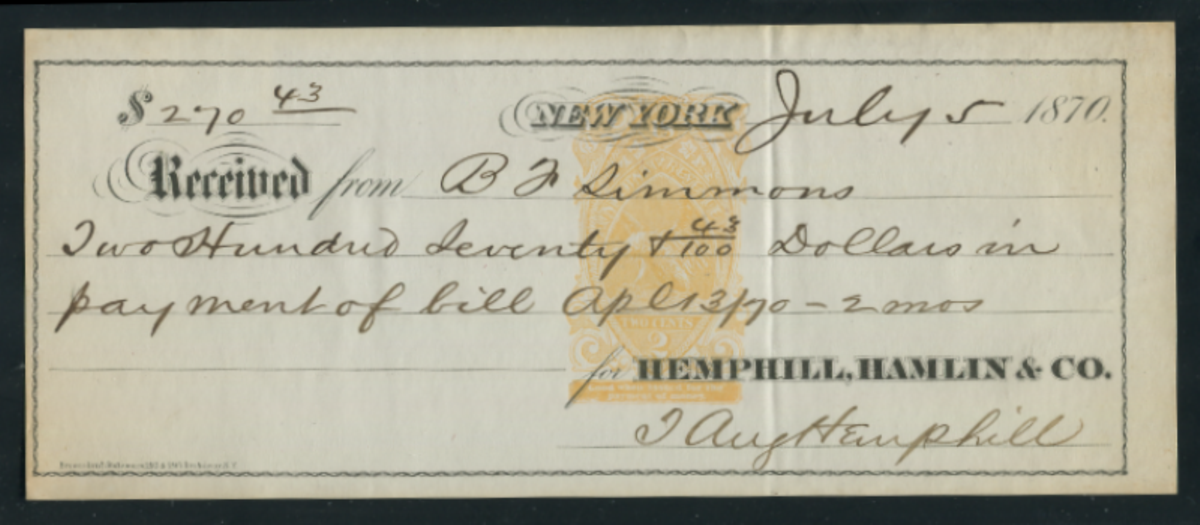 $ 270 43 NEW YORK July 5 1870.
Received from B F Simmons
Two Hundred Seventy & 43/100 Dollars in
payment of bill Apl 13/70 - 2 mos
TWO CENTS
2
for HEMPHILL, HAMLIN & CO.
payment of money
J Aug Hemphill